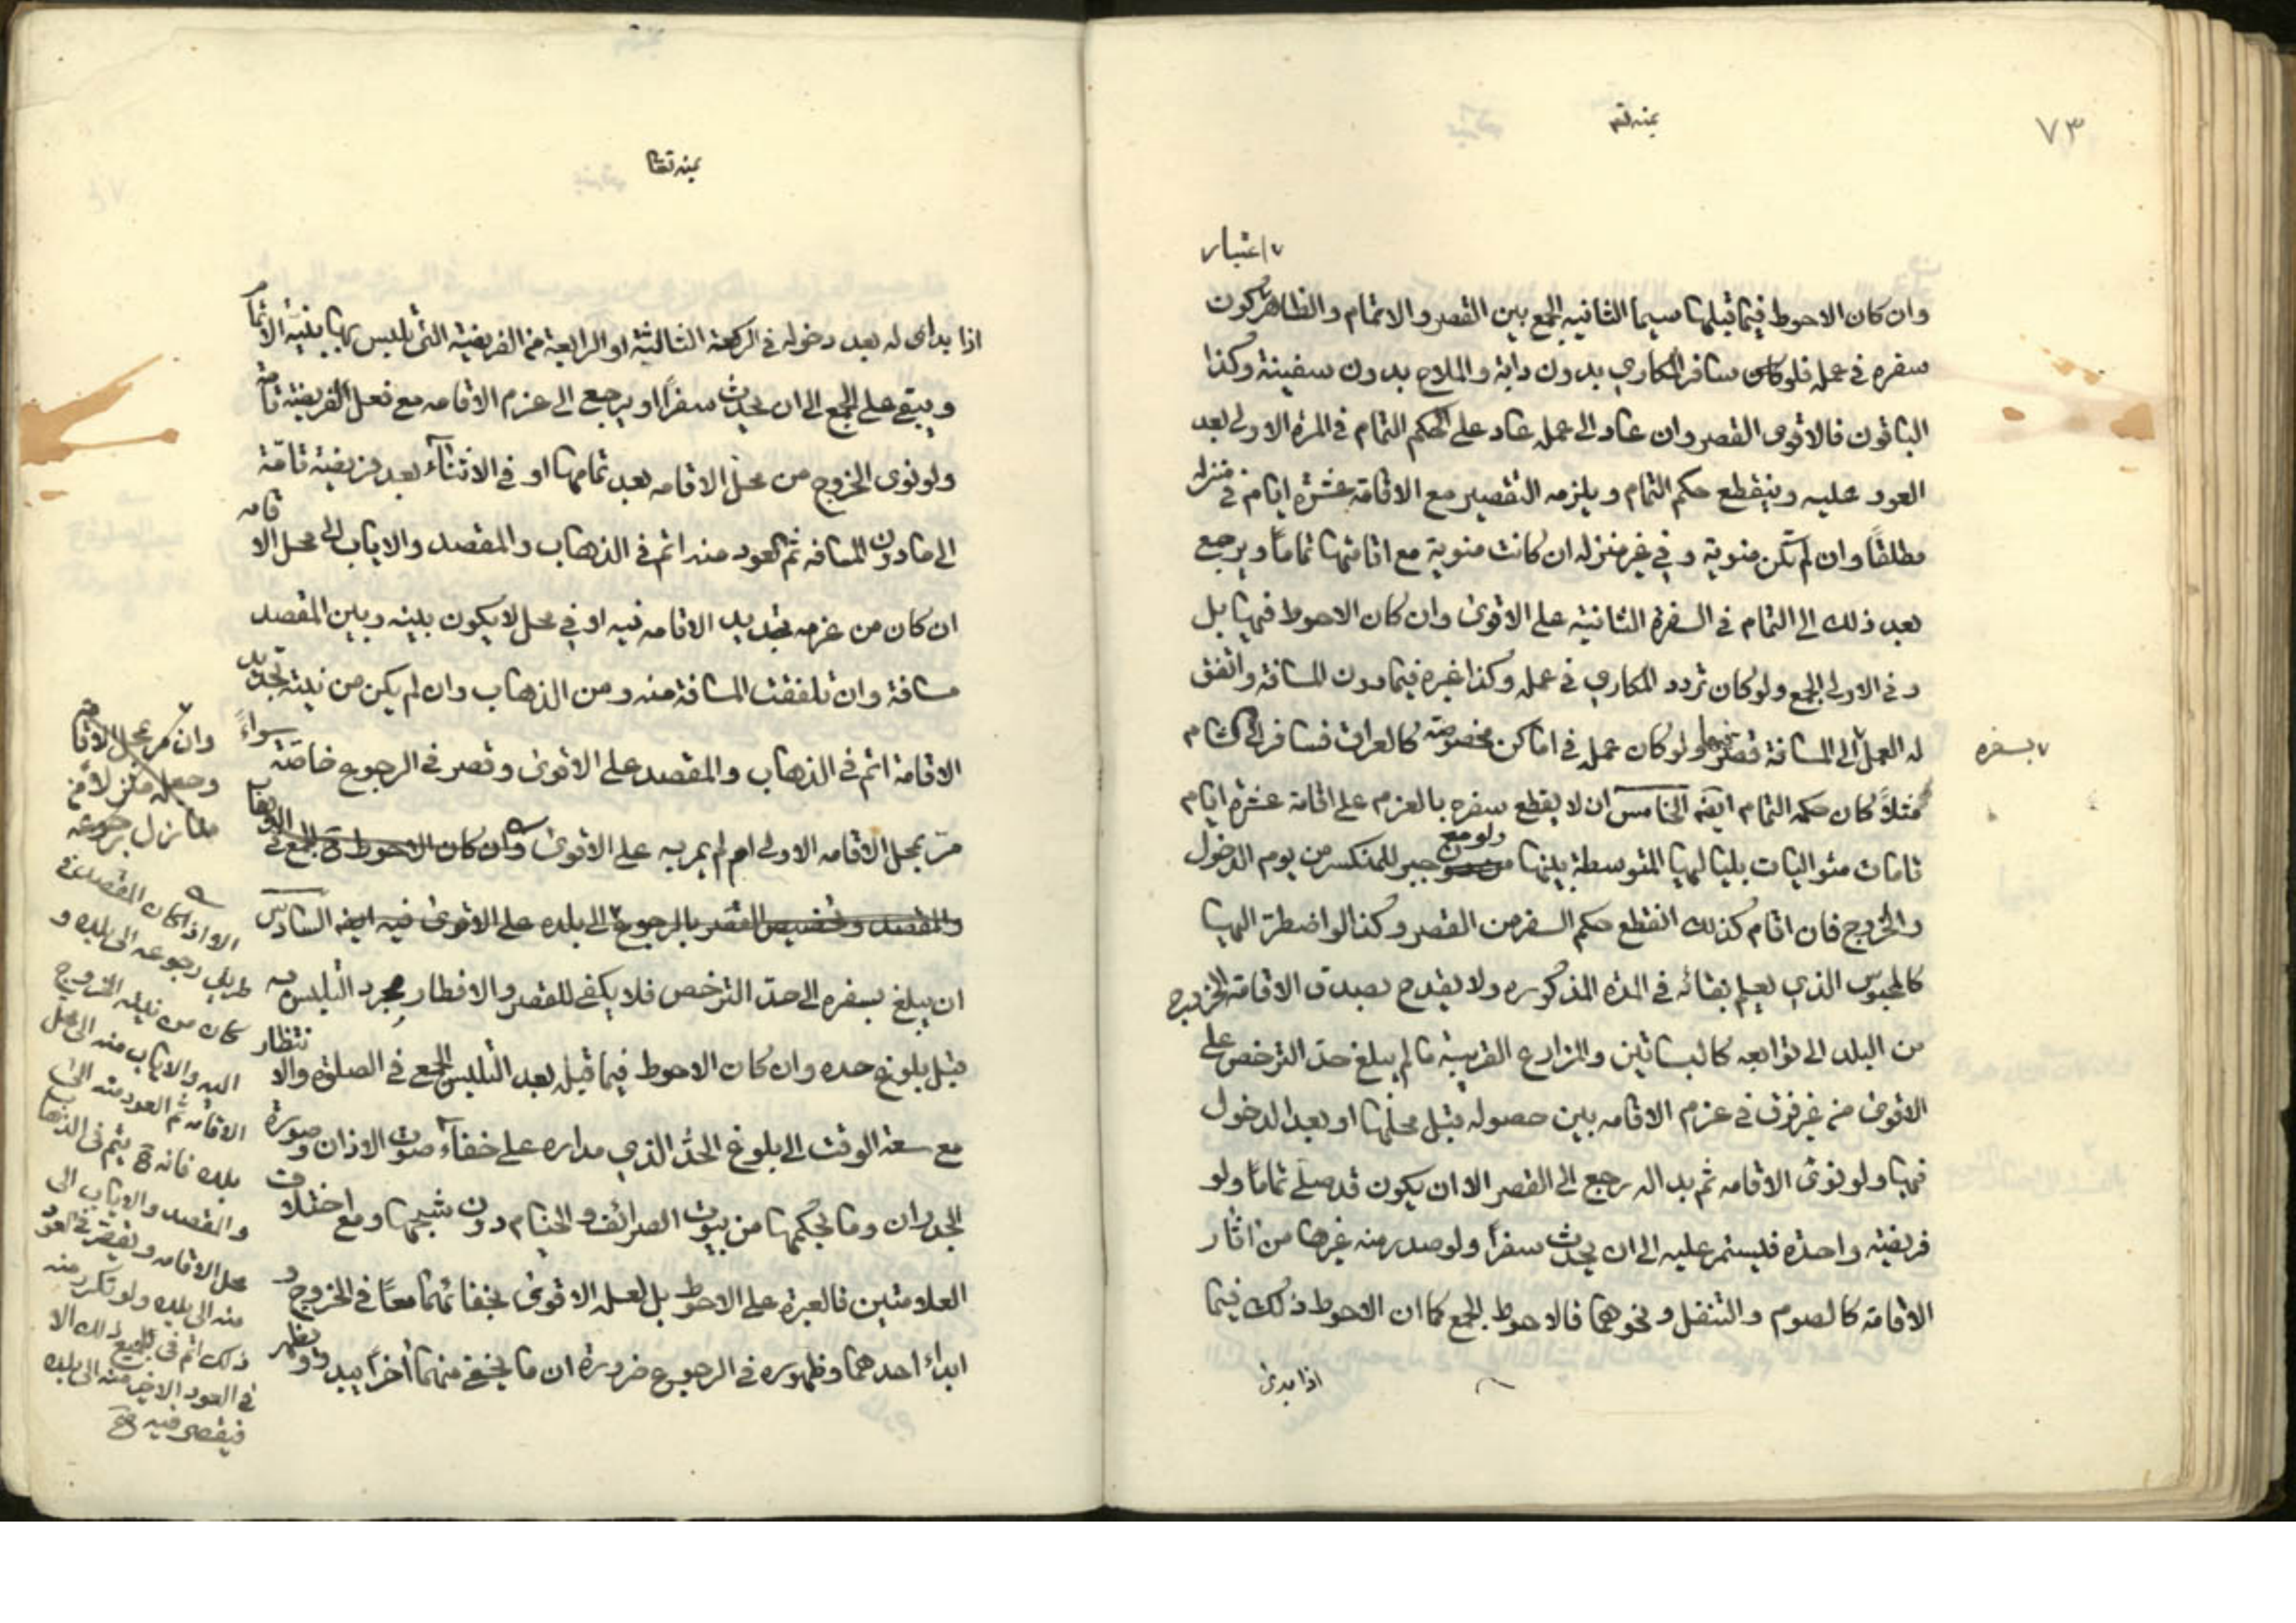 ٧٣
اعتبار
وان كان الاحوط فيما قبلها سيما الثانيه الجمع بين القصر والاتمام والظاهر كون
سفره في عمله فلو كان سافر المكاري بدون دابة والملاح بدون سفينة وكذا
الباقون فالاقوى القصر وان عاد الى عمله عاد على الحكم التمام في المرة الاولى بعد
العود عليه وينقطع حكم التمام ويلزمه التقصير مع الاقامة عشرة ايام في منزله
مطلقاً وان لم تكن منوية وفي غير منزله ان كانت منوية مع اقامتها تماماً ويرجع
بعد ذلك الى التمام في السفرة الثانية على الاقوى وان كان الاحوط فيها بل
وفي الاولى الجمع ولو كان تردد المكاري في عمله وكذا غيره فيما دون المسافة واتفق
له العمل الى المسافة قصر فيها ولو كان عمله في اماكن مخصوصة كالعراق فسافر الى الشام
بسفره
مثلاً كان حكمه التمام ايضه الخامس ان لا يقطع سفره بالعزم على اقامة عشرة ايام
تامات متواليات بلياليها المتوسطة بينها ولو مع جبر المنكسر من يوم الدخول
والخروج فان اقام كذلك انقطع حكم السفر من القصر وكذا لو اضطر اليها
كالمحبوس الذي يعلم بقائه في المدة المذكوره ولا يقدح بصدق الاقامة الخروج
من البلد الى توابعه كالبساتين والمزارع القريبة ما لم يبلغ حد الترخص على
الاقوى من غير فرق في عزم الاقامه بين حصوله قبل محلها او بعد الدخول
فيها ولو نوى الاقامه ثم بدا له رجع الى القصر الا ان يكون قد صلى تماماً ولو
فريضة واحدة فليستمر عليه الى ان يحدث سفراً ولو صدر منه غيرها من اثار
الاقامة كالصوم والتنفل ونحوهما فالاحوط الجمع كما ان الاحوط ذلك فيما
اذا بدى
اذا بدى له بعد دخوله في الركعة الثالثة او الرابعة من الفريضة التي تلبس بها بنية الاتمام
ويبقى على الجمع الى ان يحدث سفراً او يرجع الى عزم الاقامه مع فعل الفريضة تامة
ولو نوى الخروج من محل الاقامه بعد تمامها او في الاثناء بعد فريضة تامّة
الى ما دون المسافه ثم العود منه اتم في الذهاب والمقصد والاياب الى محل الاقامه
ان كان من عزمه تجديد الاقامه فيه او في محل لا يكون بينه وبين المقصد
مسافة وان تلفقت المسافة منه ومن الذهاب وان لم يكن من نيته تجديد
الاقامة اتم في الذهاب والمقصد على الاقوى وقصر في الرجوع خاصّة سواءً
مرّ بمحل الاقامه الاولى ام لم يمر به على الاقوى وان كان الاحوط الجمع في الاياب
والمقصد وتخصيص القصر بالرجوع الى بلده على الاقوى فيه ايضه السادس
ان يبلغ بسفره الى حدّ الترخص فلا يكفي للقصر والافطار مجرد التلبس به
قبل بلوغ حده وان كان الاحوط فيما قبله بعد التلبس الجمع في الصلوة والانتظار
مع سعة الوقت الى بلوغ الحدّ الذي مداره على خفاء صوت الاذان وصورة
الجدران وما بحكمها من بيوت الصرائف والخيام دون شبحها ومع اختلاف
العلامتين فالعبرة على الاحوط بل لعله الاقوى بخفائهما معاً في الخروج و
ابداء احدهما وظهوره في الرجوع ضرورة ان ما يخفى منهما أخراً يبدو ويظهر
وان مر بمحل الاقامة
وجعله منزلاً من
منازل رجوعه
الا اذا كان المقصد في
طريق رجوعه الى بلده و
كان من نيته الخروج
اليه والاياب منه الى محل
الاقامه ثم العود منه الى
بلده فانه يتم في الذهاب
والمقصد والاياب الى
محل الاقامه ويقصر في العود
منه الى بلده ولو تكرر منه
ذلك اتم في جميع ذلك الا
في العود الاخير منه الى بلده
فيقصر فيه